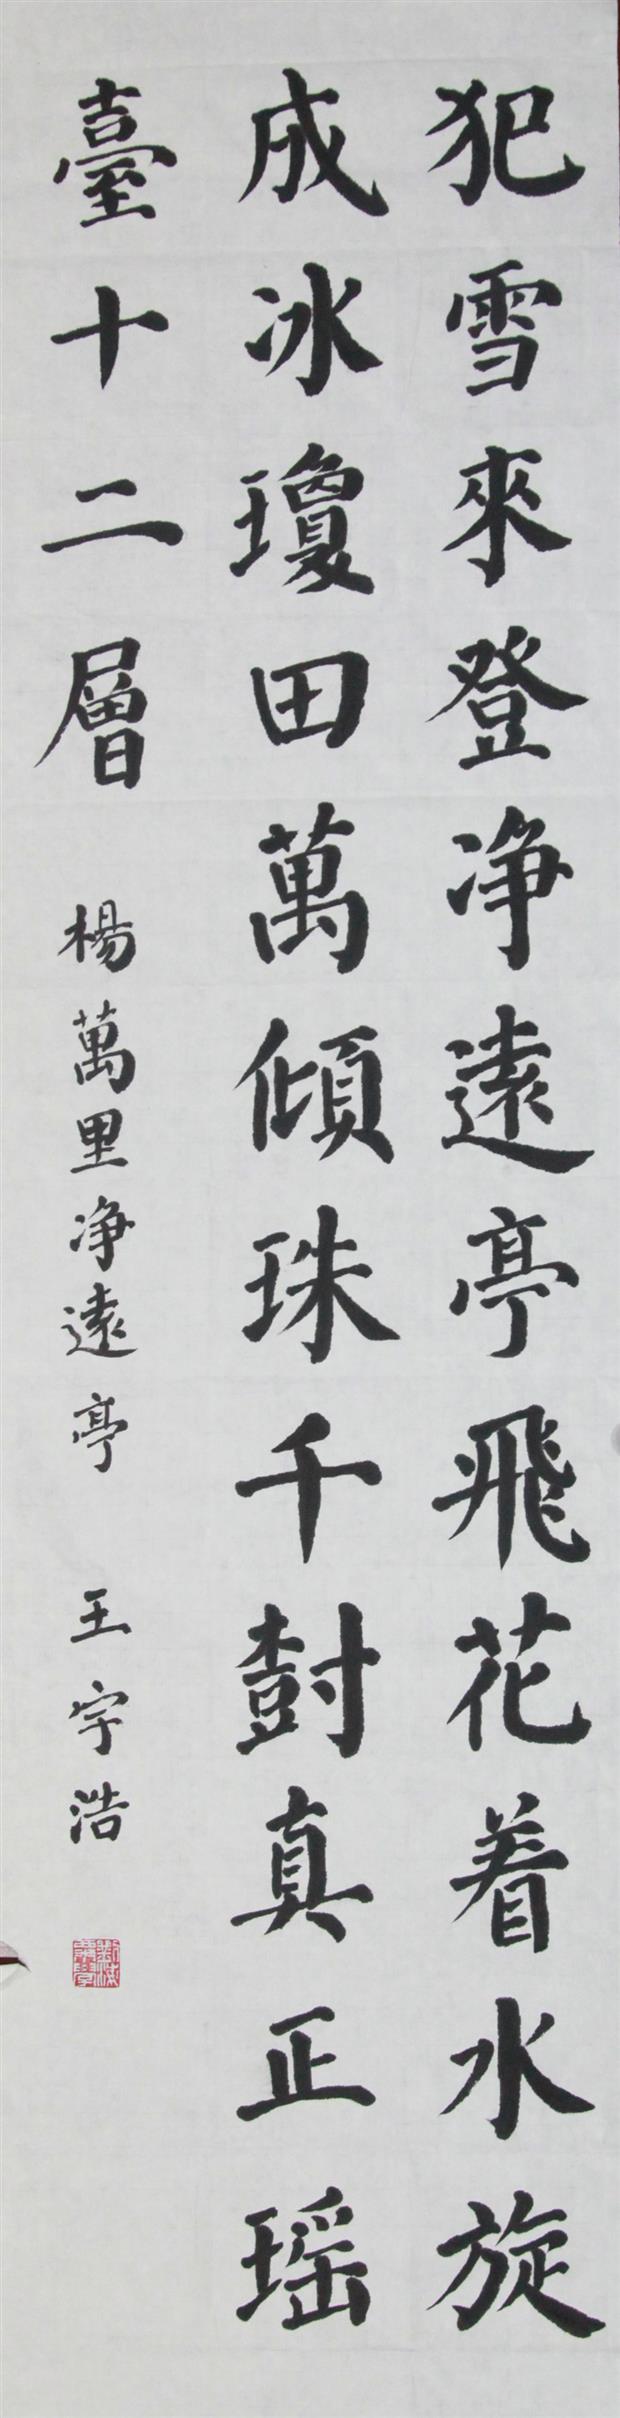 犯雪來登净遠亭飛花着水旋
成冰瓊田萬傾珠千尌真正瑶
臺十二層
楊萬里净遠亭
王宇浩